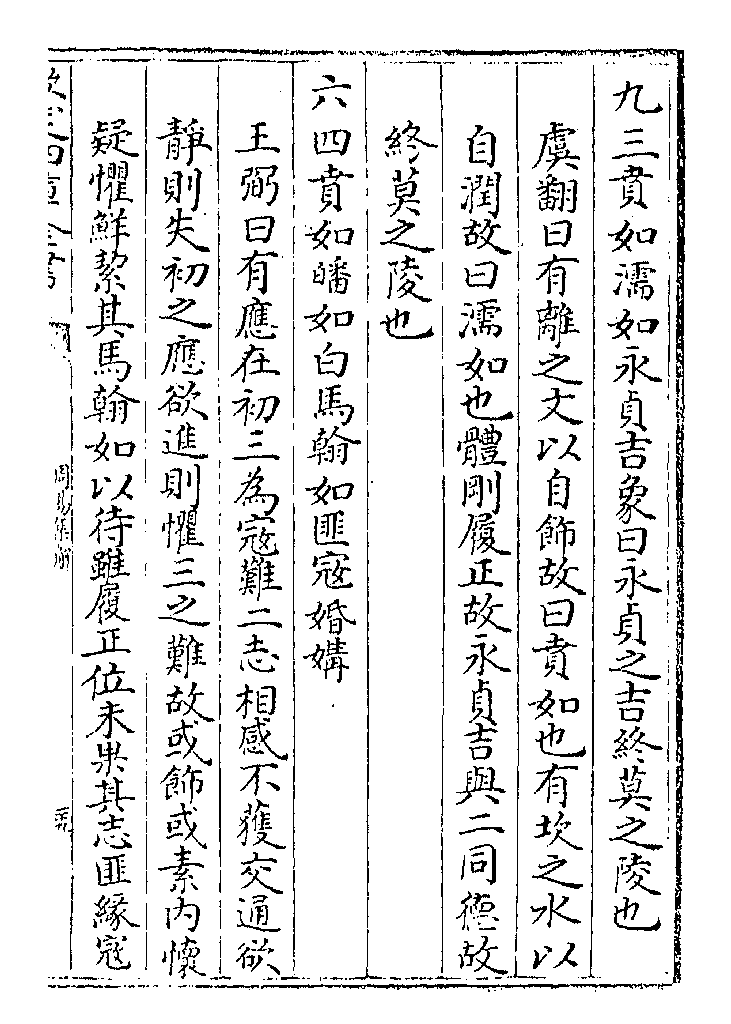 九三賁如濡如永貞吉象曰永貞之吉終莫之陵也
虞翻曰有離之文以自飾故曰賁如也有坎之水以
自潤故曰濡如也體剛履正故永貞吉與二同德故
終莫之陵也
六四賁如皤如白馬翰如匪寇婚媾
王弼曰有應在初三為寇難二志相感不獲交通欲
靜則失初之應欲進則懼三之難故或飾或素内懷
疑懼鮮絜其馬翰如以待雖履正位未果其志匪緣寇
欽定四庫全書
周易集解